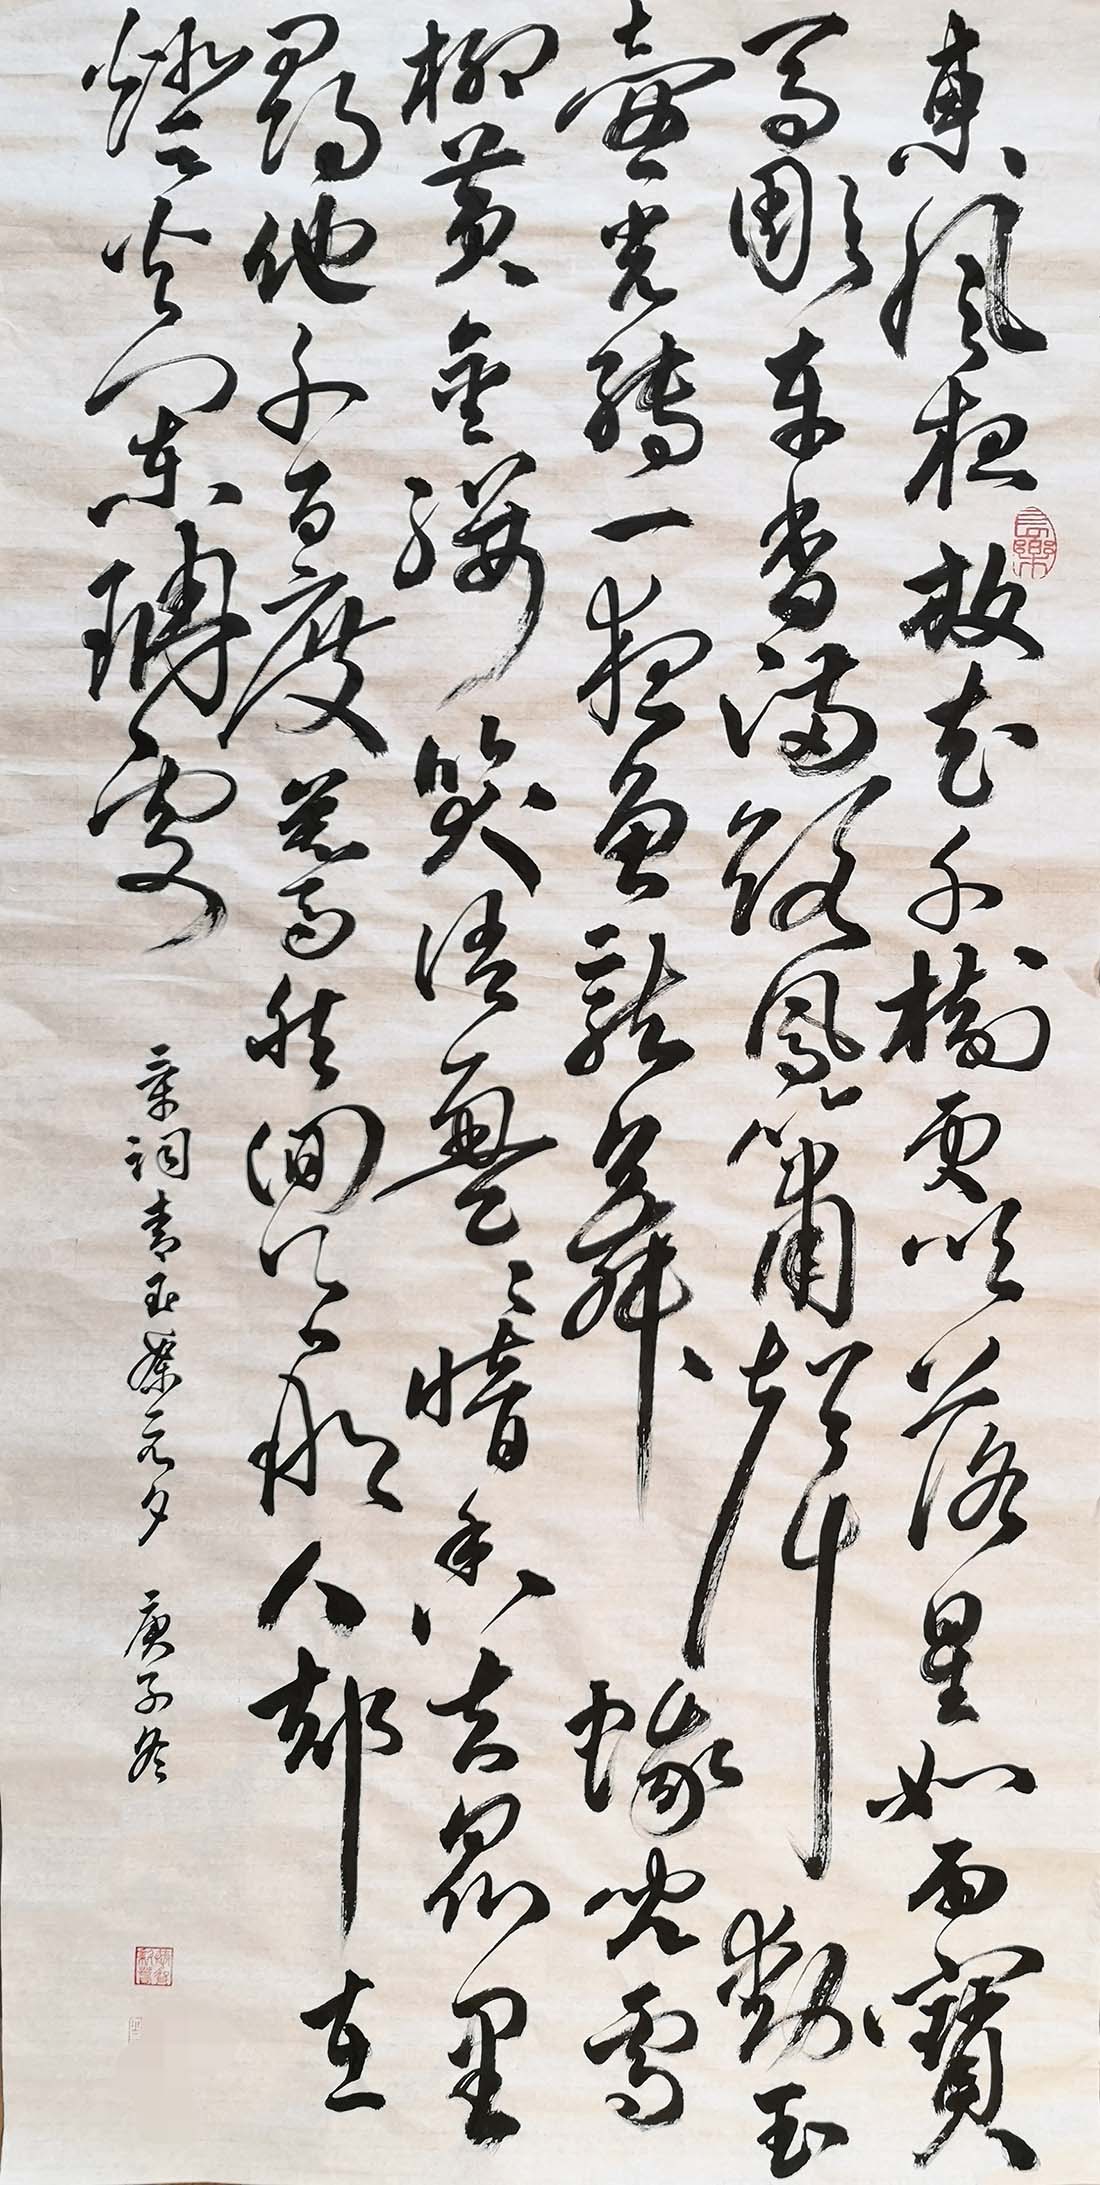 東風夜放花千樹更吹落星如雨寶
馬彫車香滿路鳳簫聲動玉
壺光轉一夜魚龍舞蛾兒雪
柳黃金縷笑語盈〻暗香去眾里
尋他千百度驀然回首那人却在
燈火闌珊處
辛詞青玉案元夕 庚子冬
長樂